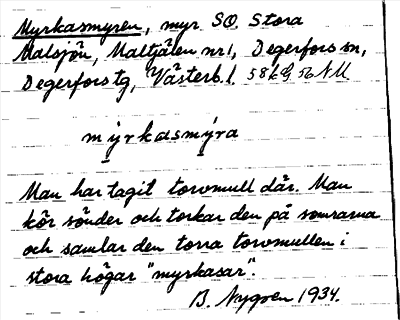 Myrkasmyren, myr SO Stora
Malsjön, Maltjälen nr 1, Degerfors sn,
Degerfors tg, Västerb. l.
mýrkasmýra
Man har tagit torvmull där. Man
kör sönder och torkar den på somrarna
och samlar den torra torvmullen i
stora högar "myrkasar".
B. Nygren 1934.